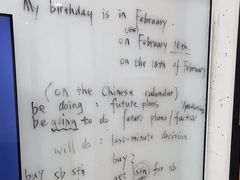 My birthday is in February.
on February 18th.
on the 18th of February
(on the Chinese calendar)
be doing : future plans /
be going to do future plans / facts /
will do : last-minute decision
buy }
buy sb sth get } sth for sb